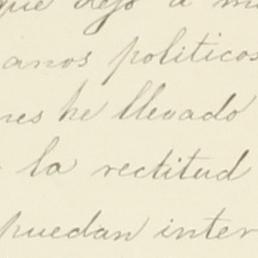 que dejo a m
anos politicos
nes he llevado
la rectitud
puedan inter